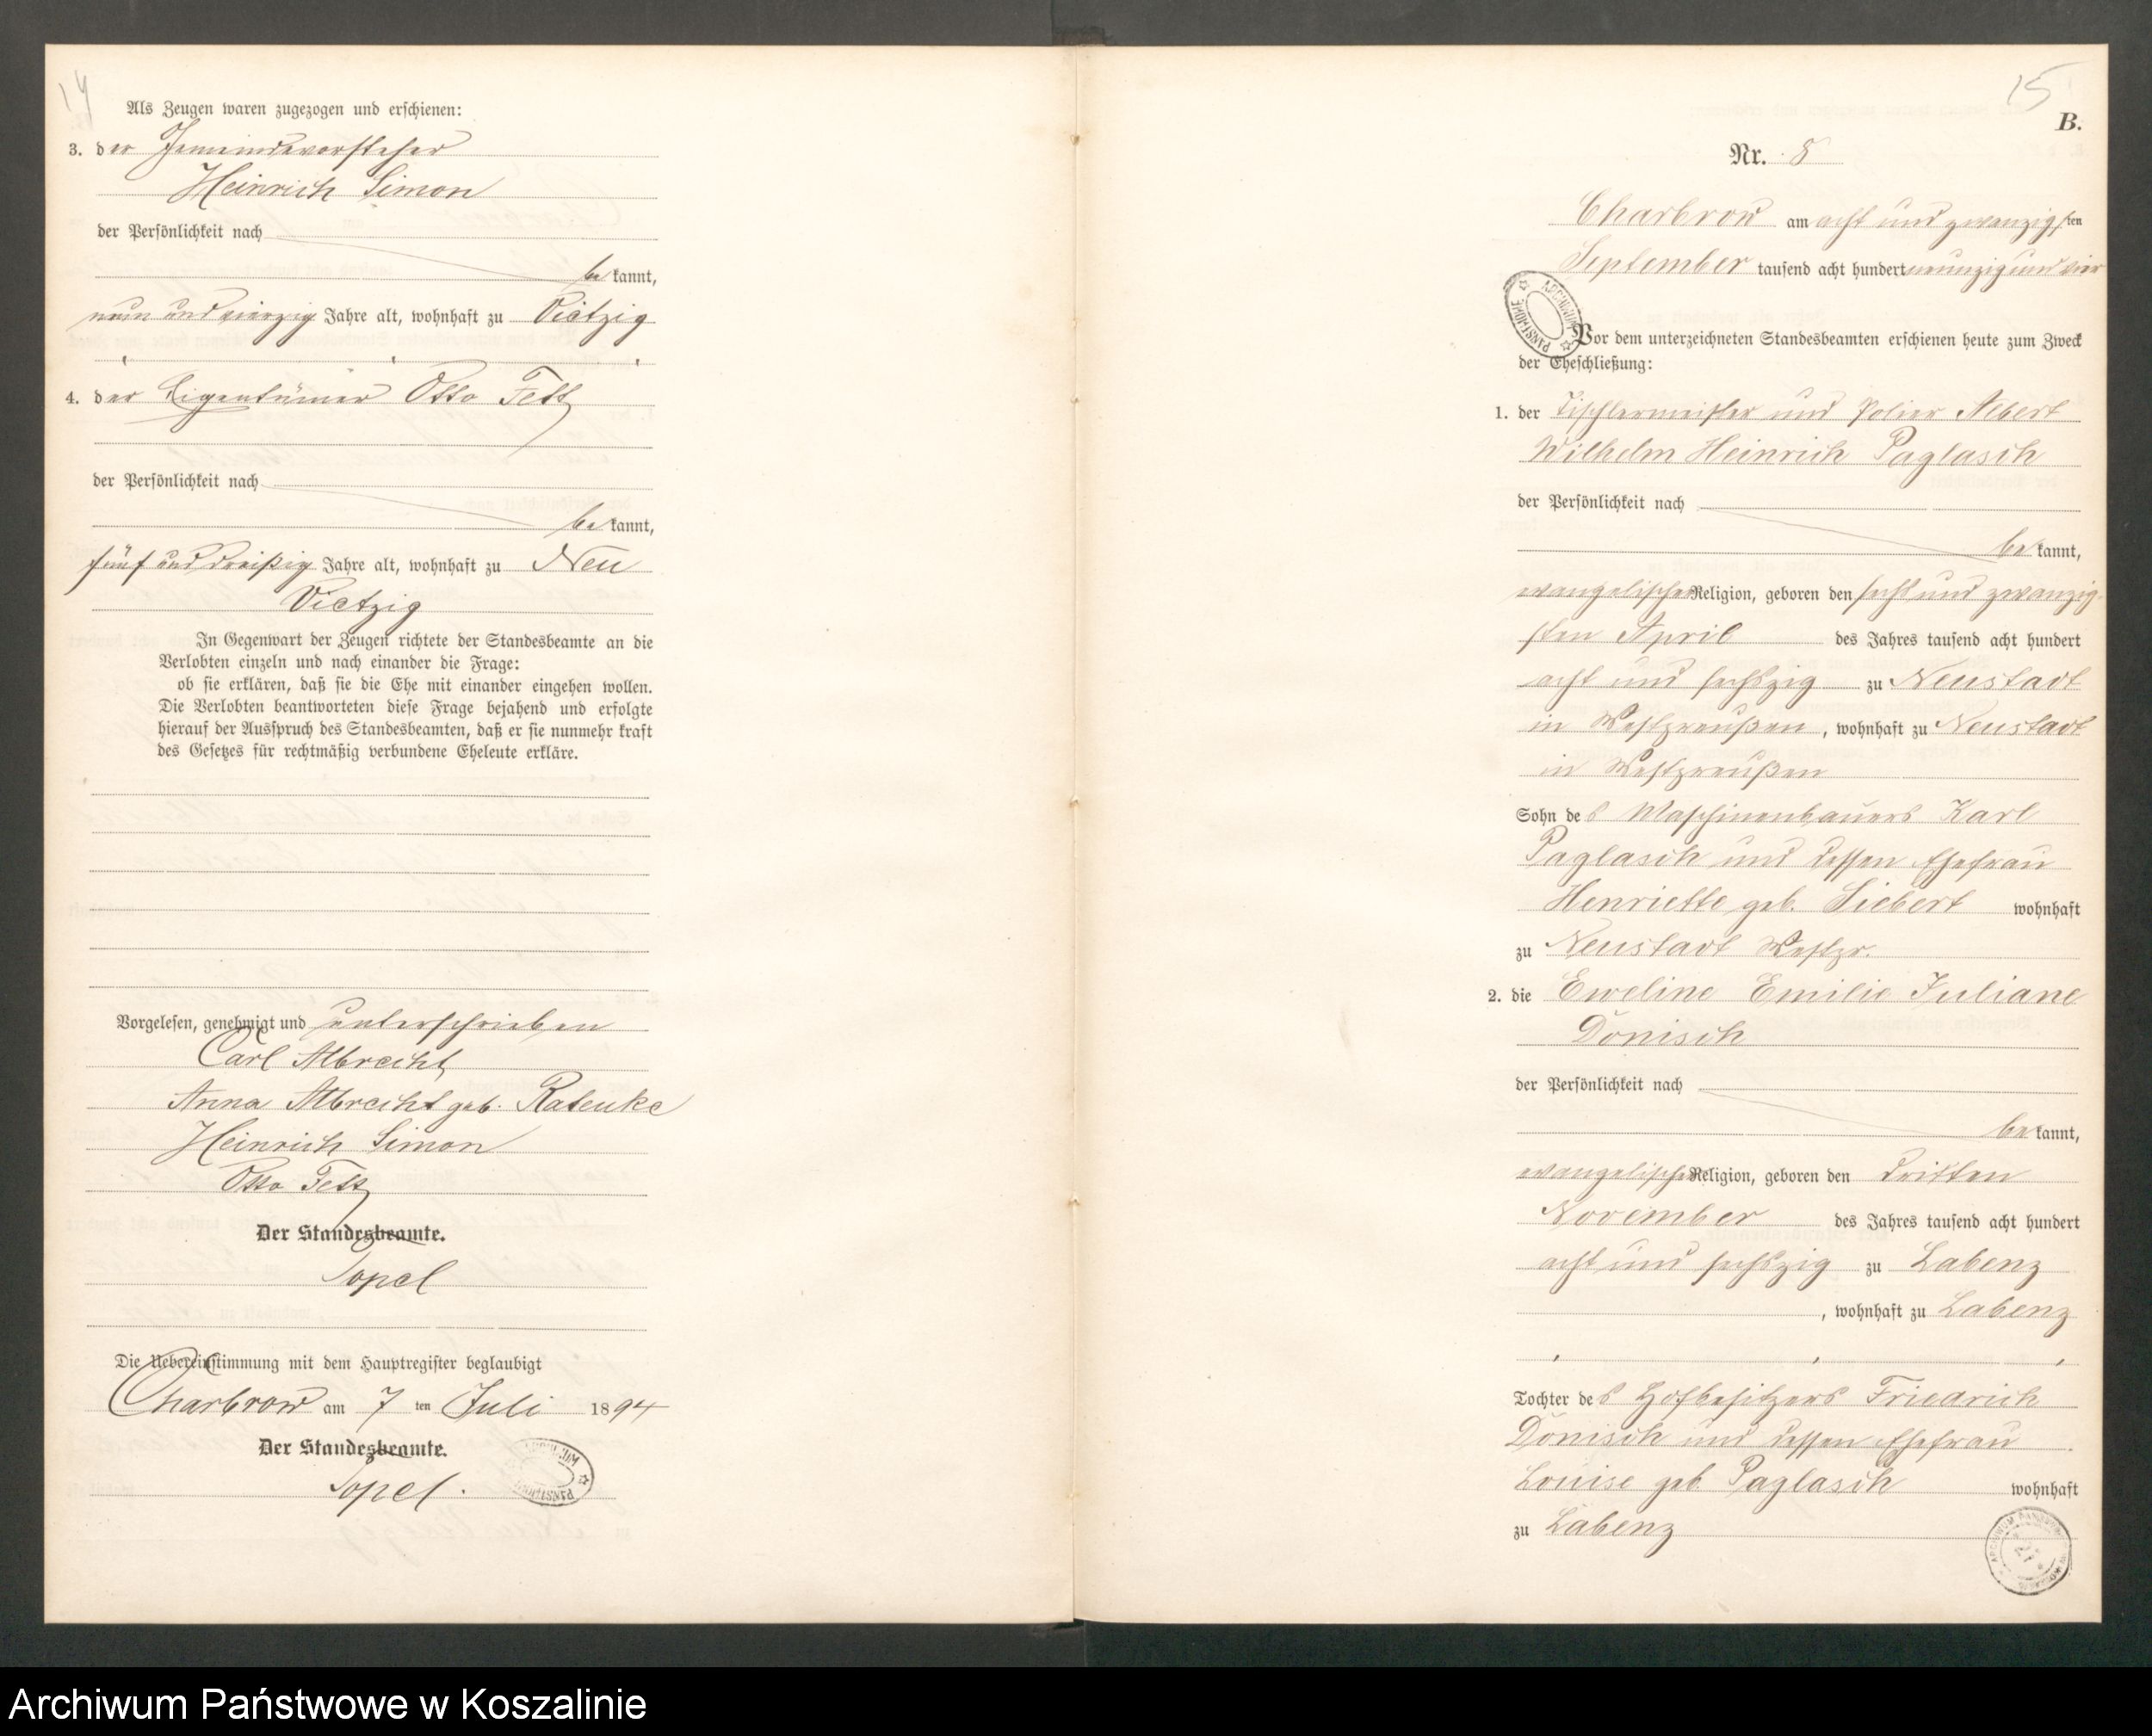 14
Als Zeugen waren zugezogen und erschienen:
3. der Gemeindevorsteher
Heinrich Simon
der Persönlichkeit nach
be kannt,
neun und vierzig Jahre alt, wohnhaft zu Vietzig
4. der Eigentümer Otto Fett
der Persönlichkeit nach
be kannt,
fünf und dreißig Jahre alt, wohnhaft zu Neu
Vietzig
In Gegenwart der Zeugen richtete der Standesbeamte an die
Verlobten einzeln und nach einander die Frage:
ob sie erklären, daß sie die Ehe mit einander eingehen wollen.
Die Verlobten beantworteten diese Frage bejahend und erfolgte
hierauf der Ausspruch des Standesbeamten, daß er sie nunmehr kraft
des Gesetzes für rechtmäßig verbundene Eheleute erkläre.
Vorgelesen, genehmigt und unterschrieben
Carl Albrecht
Anna Albrecht geb. Rateuke
Heinrich Simon
Otto Fett
Der Standesbeamte.
Topel
Die Uebereinstimmung mit dem Hauptregister beglaubigt
Charbrow am 7 ten Juli 1894
Der Standesbeamte.
Topel.
15
B.
Nr. 8
Charbrow am acht und zwanzigsten
September tausend acht hundert neunzig und vier
Vor dem unterzeichneten Standesbeamten erschienen heute zum Zweck
der Eheschließung:
1. der Tischlermeister und Polier Albert
Wilhelm Heinrich Paglasch
der Persönlichkeit nach
be kannt,
evangelischer Religion, geboren den sechs und zwanzig-
sten April des Jahres tausend acht hundert
acht und sechszig zu Neustadt
in Westpreußen, wohnhaft zu Neustadt
in Westpreußen
Sohn des Maschinenbauers Karl
Paglasch und dessen Ehefrau
Henriette geb. Siebert wohnhaft
zu Neustadt Westpr.
2. die Eweline Emilie Juliane
Dönisch
der Persönlichkeit nach
be kannt,
evangelischer Religion, geboren den dritten
November des Jahres tausend acht hundert
acht und sechszig zu Labenz
, wohnhaft zu Labenz
Tochter des Hofbesitzers Friedrich
Dönisch und dessen Ehefrau
Louise geb. Paglasch wohnhaft
zu Labenz
ARCHIWUM PAŃSTWOWE
Archiwum Państwowe w Koszalinie